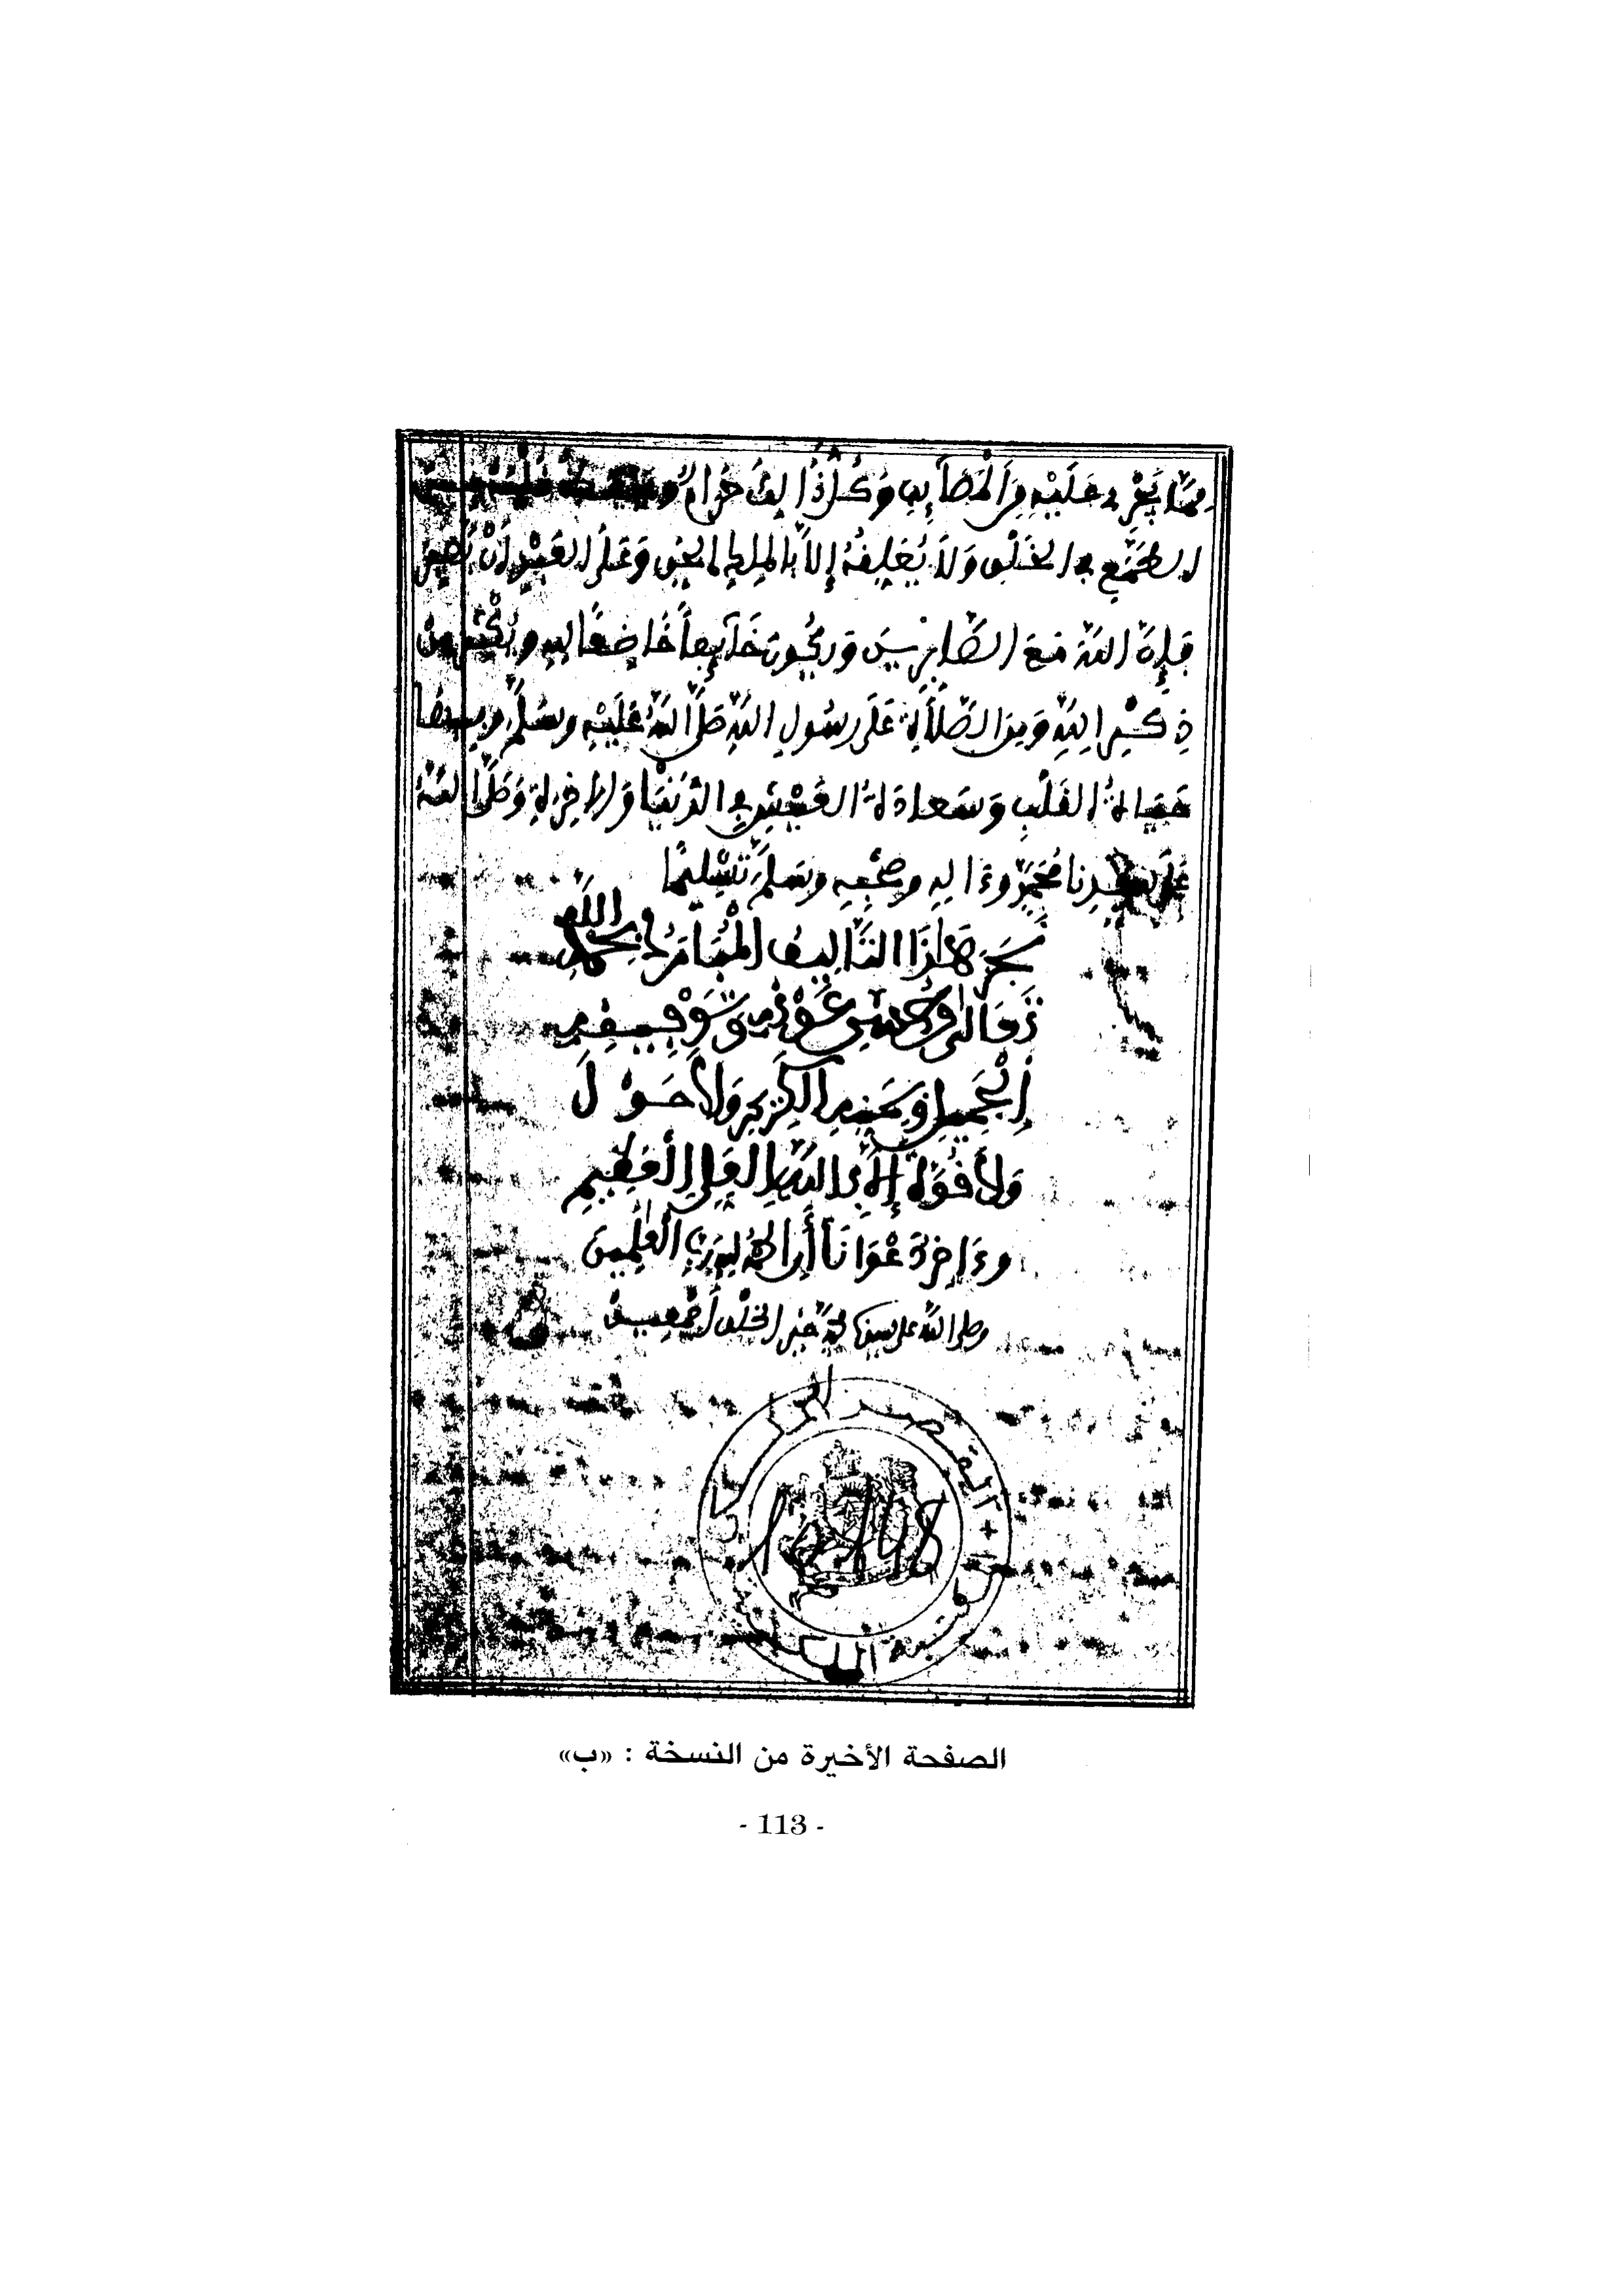 مِمَّا يَجْرِي عَلَيْهِ مِنَ الْمَصَآئِبِ وَكُلُّ ذَٰلِكَ حَرَامٌ
الطَّمَعِ فِي الخَلْقِ وَلاَ يُعَلِّقُهُ إِلاَّ بِالْمَلِكِ الحَقِّ وَعَلَى العَبْدِ أَنْ يَصْبِرَ
فَإِنَّ اللَّهَ مَعَ الصَّابِرِينَ وَيَكُونَ خَآئِفاً خَاضِعًا لِلهِ وَيُكْثِرَ مِنْ
ذِكْرِ اللَّهِ وَمِنَ الصَّلاَةِ عَلَى رَسُولِ اللَّهِ صَلَّى اللَّهُ عَلَيْهِ وَسَلَّمَ
حَيَاةُ القَلْبِ وَسَعَادَةُ العَيْشِ فِي الدُّنْيَا وَالآخِرَةِ وَصَلَّى اللَّهُ
عَلَى سَيِّدِنَا مُحَمَّدٍ وَءَالِهِ وَصَحْبِهِ وَسَلَّمَ تَسْلِيمًا
نَجَزَ هَٰذَا التَّأْلِيفُ الْمُبَارَكُ بِحَمْدِ اللَّهِ
تَعَالَى وَحُسْنِ عَوْنِهِ وَتَوْفِيقِهِ
الْجَمِيلِ وَيُمْنِهِ الْكَرِيمِ وَلاَ حَوْلَ
وَلاَ قُوَّةَ إِلاَّ بِاللَّهِ الْعَلِيِّ الْعَظِيمِ
وَءَاخِرُ دَعْوَانَا أَنِ الحَمْدُ لِلهِ رَبِّ الْعَٰلَمِينَ
وصلى الله على سيدنا محمد خير الخلق أجمعين
القصر الملكي
المكتبة الملكية
الصفحة الأخيرة من النسخة : «ب»
- 113 -